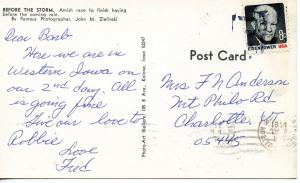 BEFORE THE STORM. Amish race to finish haying
before the coming rain.
By Famous Photographer, John M. Zielinski
Dear Barb
Here we are in
Western Iowa on
our 2nd day. All
is going fine
Give our love to
Robbie
Love
Fred
Photo-Art Gallery, Kalona, Iowa 52247
Post Card
EISENHOWER USA
8c
Mrs F N Anderson
Mt Philo Rd
Charlotte, VT
05445